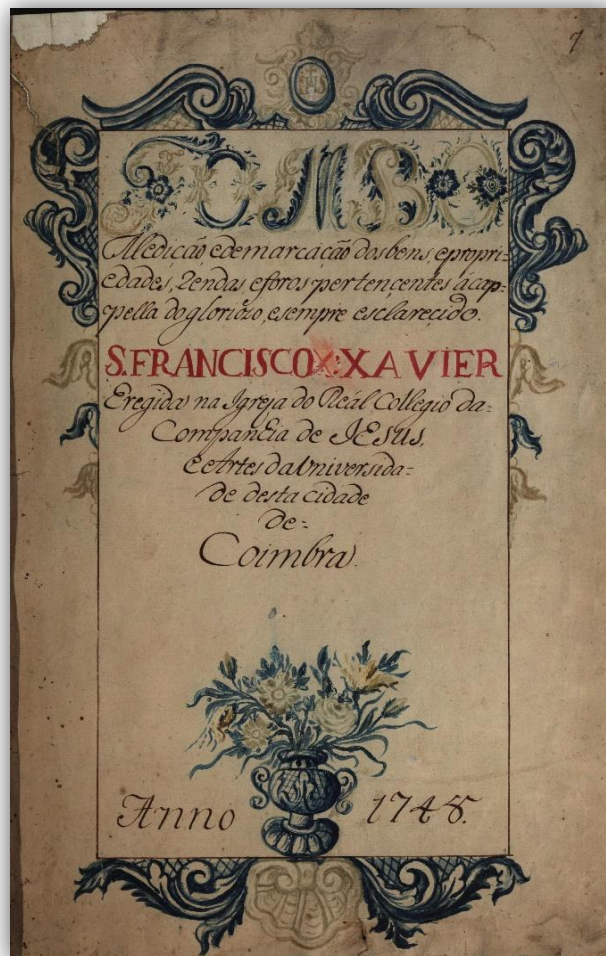 7
IHS
TOMBO
Medição, e demarcação dos bens, e propri-
edades, Rendas e foros pertencentes à cap-
pella do glorioso, e sempre esclarecido.
S. FRANCISCO X: XAVIER
Eregida na Igreja do Reál Collegio da=
Companhia de JESUS,
e Artes da Universida=
de desta cidade
de=
Coimbra.
Anno 1748.